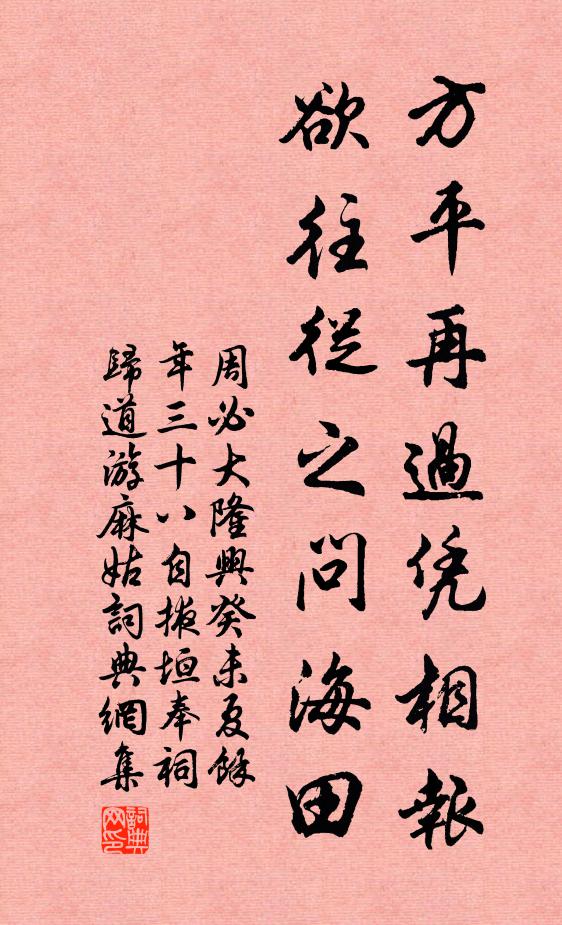 方平再過凭相報
欲往從之問海田
周必大隆興癸未夏餘
年三十八自掖垣奉祠
歸道游麻姑詞典網集
詞典网印